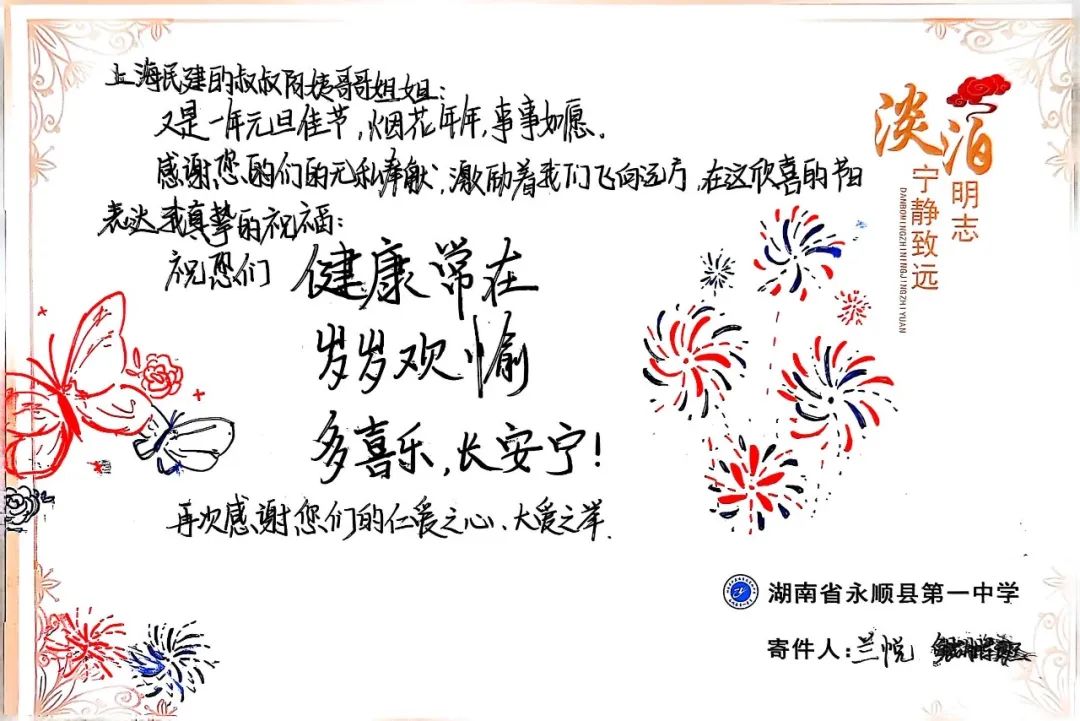 上海民建的叔叔阿姨哥哥姐姐：
又是一年元旦佳节，烟花年年，事事如愿。
感谢您的们的无私奉献，激励着我们飞向远方，在这欣喜的节日
表达我真挚的祝福：
祝您们 健康常在
岁岁欢愉
多喜乐，长安宁！
再次感谢您们的仁爱之心、大爱之举.
淡泊
明志
宁静致远
DANBOMINGZHININGJINGZHIYUAN
湖南省永顺县第一中学
寄件人：兰悦